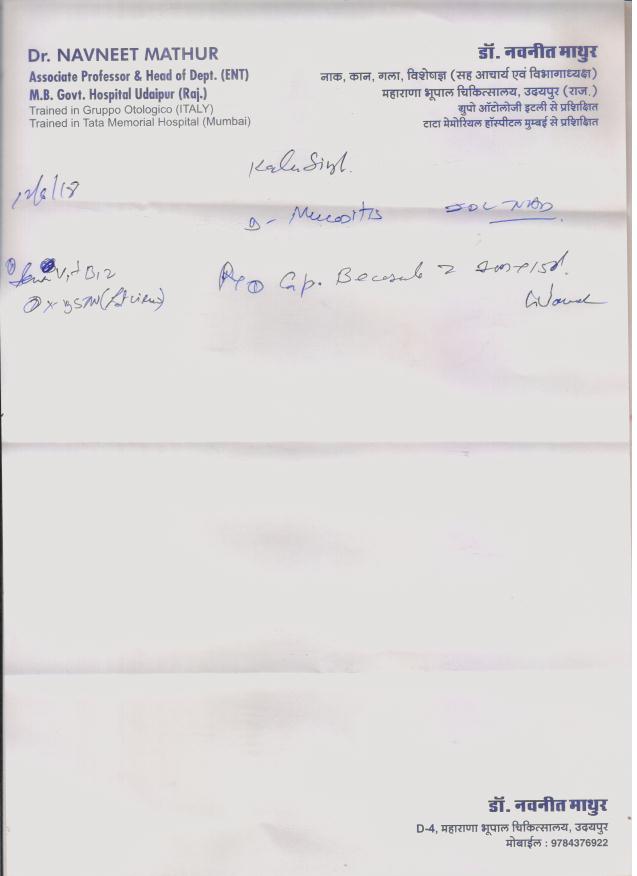 Dr. NAVNEET MATHUR
Associate Professor & Head of Dept. (ENT)
M.B. Govt. Hospital Udaipur (Raj.)
Trained in Gruppo Otologico (ITALY)
Trained in Tata Memorial Hospital (Mumbai)
डॉ. नवनीत माथुर
नाक, कान, गला, विशेषज्ञ (सह आचार्य एवं विभागाध्यक्ष)
महाराणा भूपाल चिकित्सालय, उदयपुर (राज.)
ग्रुपो ऑटोलोजी इटली से प्रशिक्षित
टाटा मेमोरियल हॉस्पीटल मुम्बई से प्रशिक्षित
Kalu Singh.
12/6/18
Mucositis
IDL NAD
Vit B12
Cap. Becosule
डॉ. नवनीत माथुर
D-4, महाराणा भूपाल चिकित्सालय, उदयपुर
मोबाईल : 9784376922